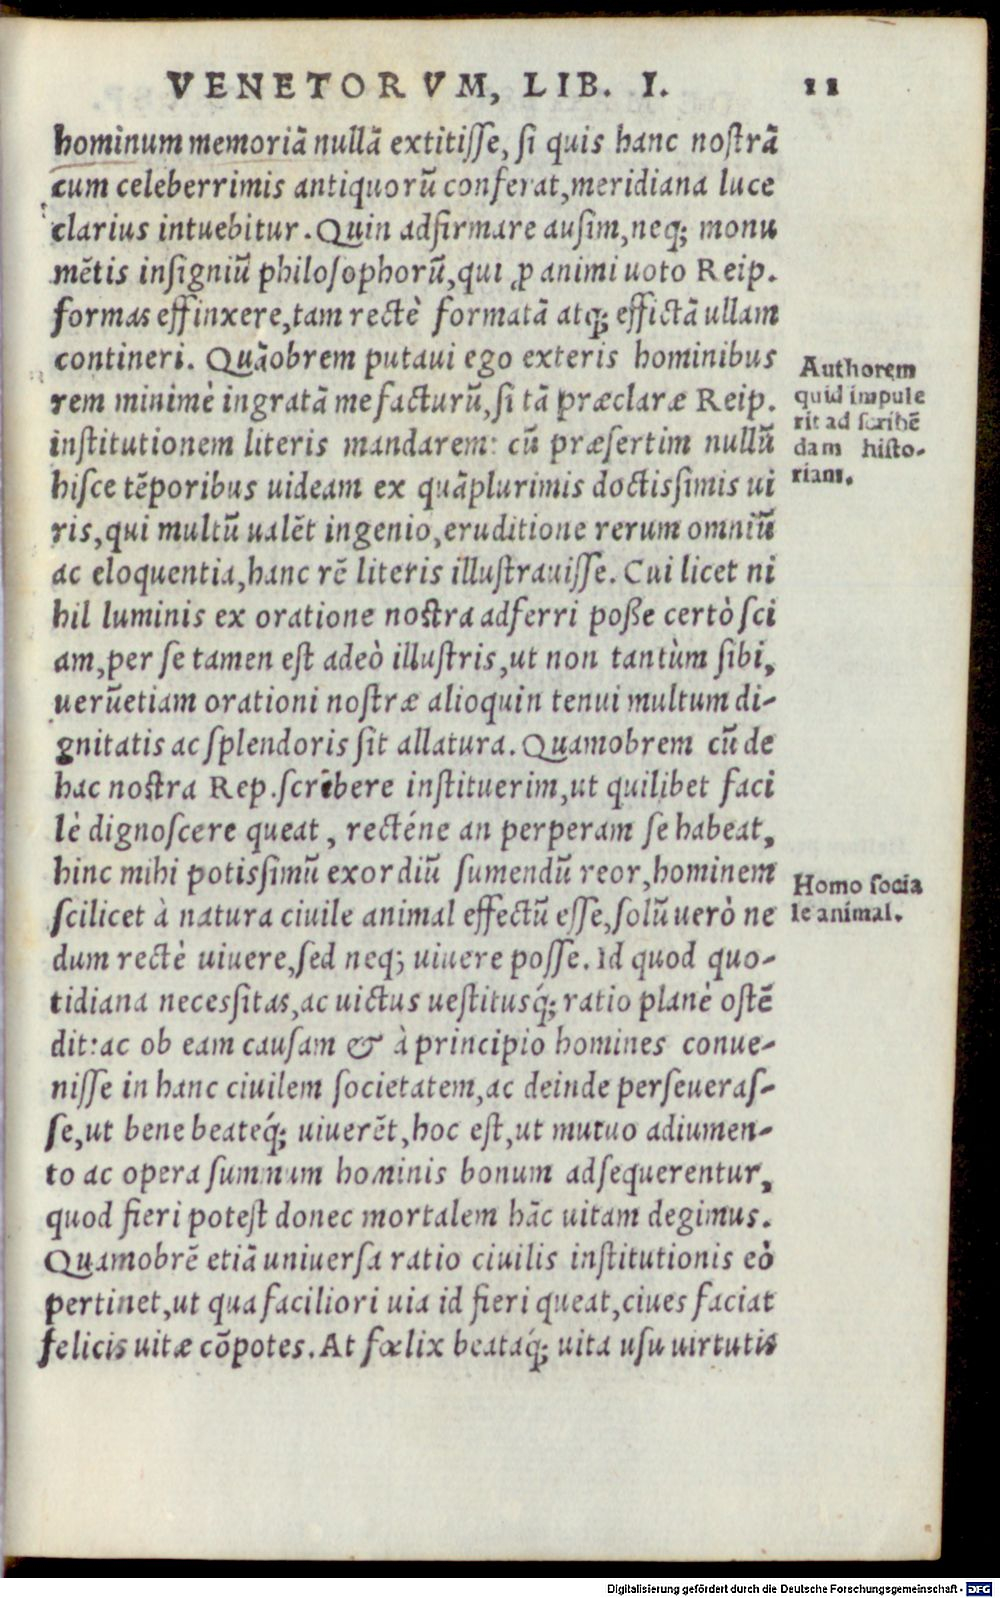 VENETORVM, LIB. I. 11
hominum memoriā nullā extitiſſe, ſi quis hanc noſtrā
cum celeberrimis antiquorū conferat, meridiana luce
clarius intuebitur. Quin adfirmare auſim, neq; monu
mētis inſigniū philoſophorū, qui ꝓ animi uoto Reip.
formas effinxere, tam rectè formatā atq; effictā ullam
contineri. Quāobrem putaui ego exteris hominibus
rem minimè ingratā me facturū, ſi tā præclaræ Reip.
inſtitutionem literis mandarem: cū præſertim nullū
hiſce tēporibus uideam ex quāplurimis doctiſsimis ui
ris, qui multū ualēt ingenio, eruditione rerum omniū
ac eloquentia, hanc rē literis illuſtrauiſſe. Cui licet ni
hil luminis ex oratione noſtra adferri poße certò ſci
am, per ſe tamen eſt adeò illuſtris, ut non tantùm ſibi,
uerūetiam orationi noſtræ alioquin tenui multum di-
gnitatis ac ſplendoris ſit allatura. Quamobrem cū de
hac noſtra Rep. ſcribere inſtituerim, ut quilibet faci
lè dignoſcere queat, recténe an perperam ſe habeat,
hinc mihi potiſsimū exordiū ſumendū reor, hominem
ſcilicet à natura ciuile animal effectū eſſe, ſolū uerò ne
dum rectè uiuere, ſed neq; uiuere poſſe. Id quod quo-
tidiana neceſsitas, ac uictus ueſtitusq́; ratio planè oſtē
dit: ac ob eam cauſam & à principio homines conue-
niſſe in hanc ciuilem ſocietatem, ac deinde perſeueraſ-
ſe, ut bene beateq́; uiuerēt, hoc eſt, ut mutuo adiumen-
to ac opera ſummum hominis bonum adſequerentur,
quod fieri poteſt donec mortalem hāc uitam degimus.
Quamobrē etiā uniuerſa ratio ciuilis inſtitutionis eò
pertinet, ut qua faciliori uia id fieri queat, ciues faciat
felicis uitæ cōpotes. At fœlix beataq́; uita uſu uirtutis
Authorem
quid impule
rit ad ſcribē
dam hiſto-
riam.
Homo ſocia
le animal.
Digitalisierung gefördert durch die Deutsche Forschungsgemeinschaft - DFG